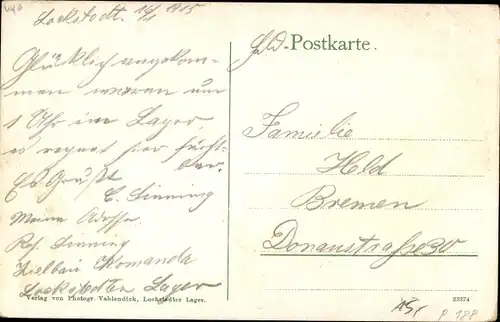 Lockstedt. 16/1 1915
Glücklich angekom-
men waren um
1 Uhr im Lager,
es regnet hier furcht-
bar.
Es Grüßt
C. Sinning
Meine Adresse
Res. Sinning
Zielbau Komando
Lockstedter Lager
Verlag von Photogr. Vahlendick, Lockstedter Lager.
Feld-Postkarte.
Famielie
Held
Bremen
Donaustraße 30
23374
P 188